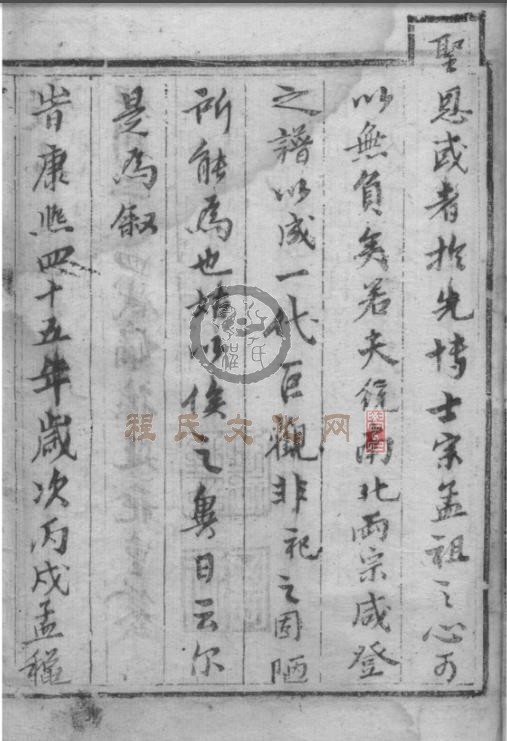 聖恩或者扵先博士宗孟祖之心可
以無負矣若夫統南北兩宗咸登
之譜以成一代巨觀非祀之固陋
所能爲也姑以俟之異日云尔
是爲叙
旹康熙四十五年歲次丙戌孟穐
程氏文化网